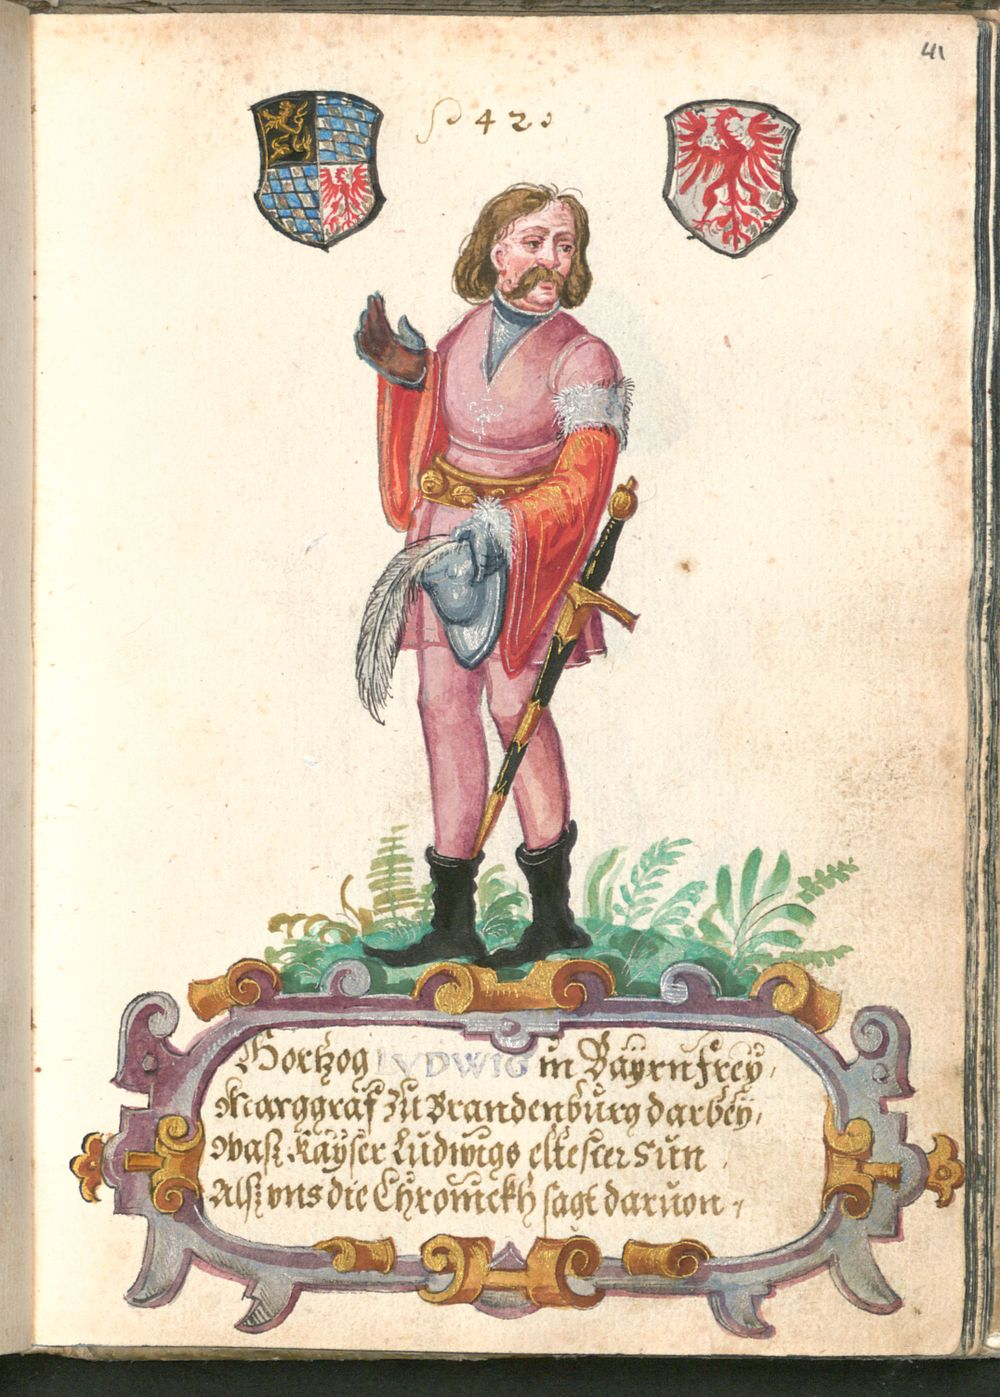 41
42
Hortzog LVDWIG in Baÿrn freÿ,
Marggraf zu Brandenburg darbeÿ,
Waß Kaÿser Ludwigs eltester Sun
Alß vns die Chronickh sagt daruon